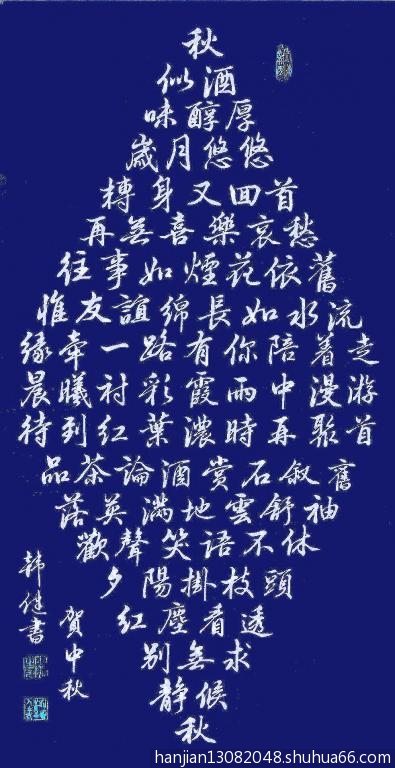 秋
似酒
味醇厚
歲月悠悠
轉身又回首
再無喜樂哀愁
往事如煙花依舊
惟友誼綿長如水流
緣牽一路有你陪着走
晨曦一衬彩霞雨中漫游
待到红葉濃時再聚首
品茶論酒赏石叙舊
落英滿地雲舒袖
歡聲笑语不休
夕陽掛枝頭
红塵看透
别無求
静候
秋
賀中秋
韩健書
hanjian13082048.shuhua66.com